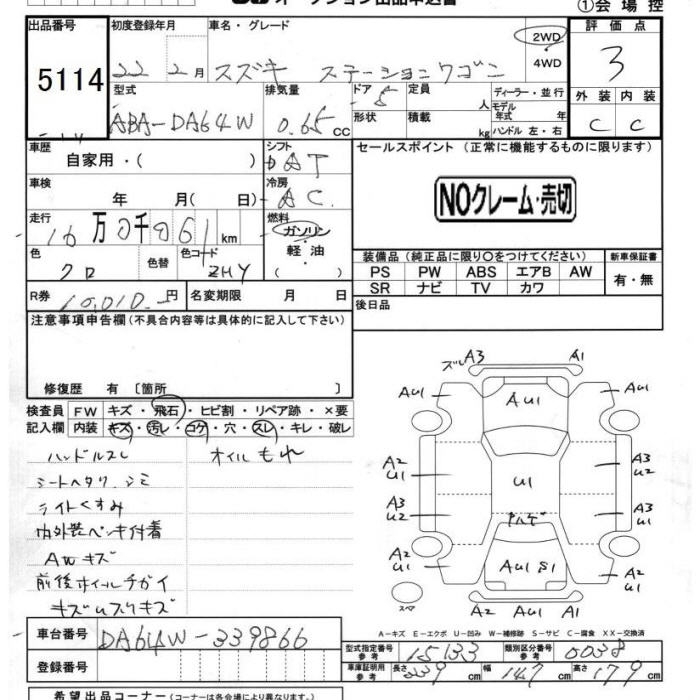 オークション出品申込書
①会場控
出品番号 初度登録年月 車名・グレード 2WD 評価点
5114 22 2月 スズキ ステーションワゴン 4WD 3
型式 排気量 ドア 定員 ディーラー・並行 外装 内装
ABA-DA64W 0.65 CC 5 人 モデル年式 年 C C
形状 積載 kg ハンドル 左・右
車歴 シフト セールスポイント(正常に機能するものに限ります)
自家用・( ) AT
車検 冷房
年 月( 日) AC NOクレーム・売切
走行 燃料
16万0千961km ガソリン
軽・油
色 色替 色コード 装備品(純正品に限り〇をつけてください) 新車保証書
クロ ZHY PS PW ABS エアB AW 有・無
SR ナビ TV カワ
R券 10,010円 名変期限 月 日 後日品
注意事項申告欄(不具合内容等は具体的に記入して下さい)
修復歴 有〔箇所
検査員 FW キズ・飛石・ヒビ割・リペア跡・×要
記入欄 内装 キズ・汚レ・コゲ・穴・スレ・キレ・破レ
ハンドルスレ オイルもれ
シートヘタリ シミ
ライトくすみ
内外装ペンキ付着
AWキズ
前後ホイルチガイ
キズUスリキズ
ズレA3 A1
AU1 AU1 AU1
A2 U1 U1 A3 U2
A3 U2 ドハゲ A3 U1
A2 U1 AU1 S1 A2 U1
スペア A2 AU1 A1
A−キズ E−エクボ U−凹み W−補修跡 S−サビ C−腐食 XX−交換済
車台番号 DA64W-339866
登録番号
型式指定番号 参考 15133 類別区分番号 参考 0038
車庫証明用 参考 長さ 339cm 幅 147cm 高さ 179cm
希望出品コーナー(コーナーは各会場により異なります)